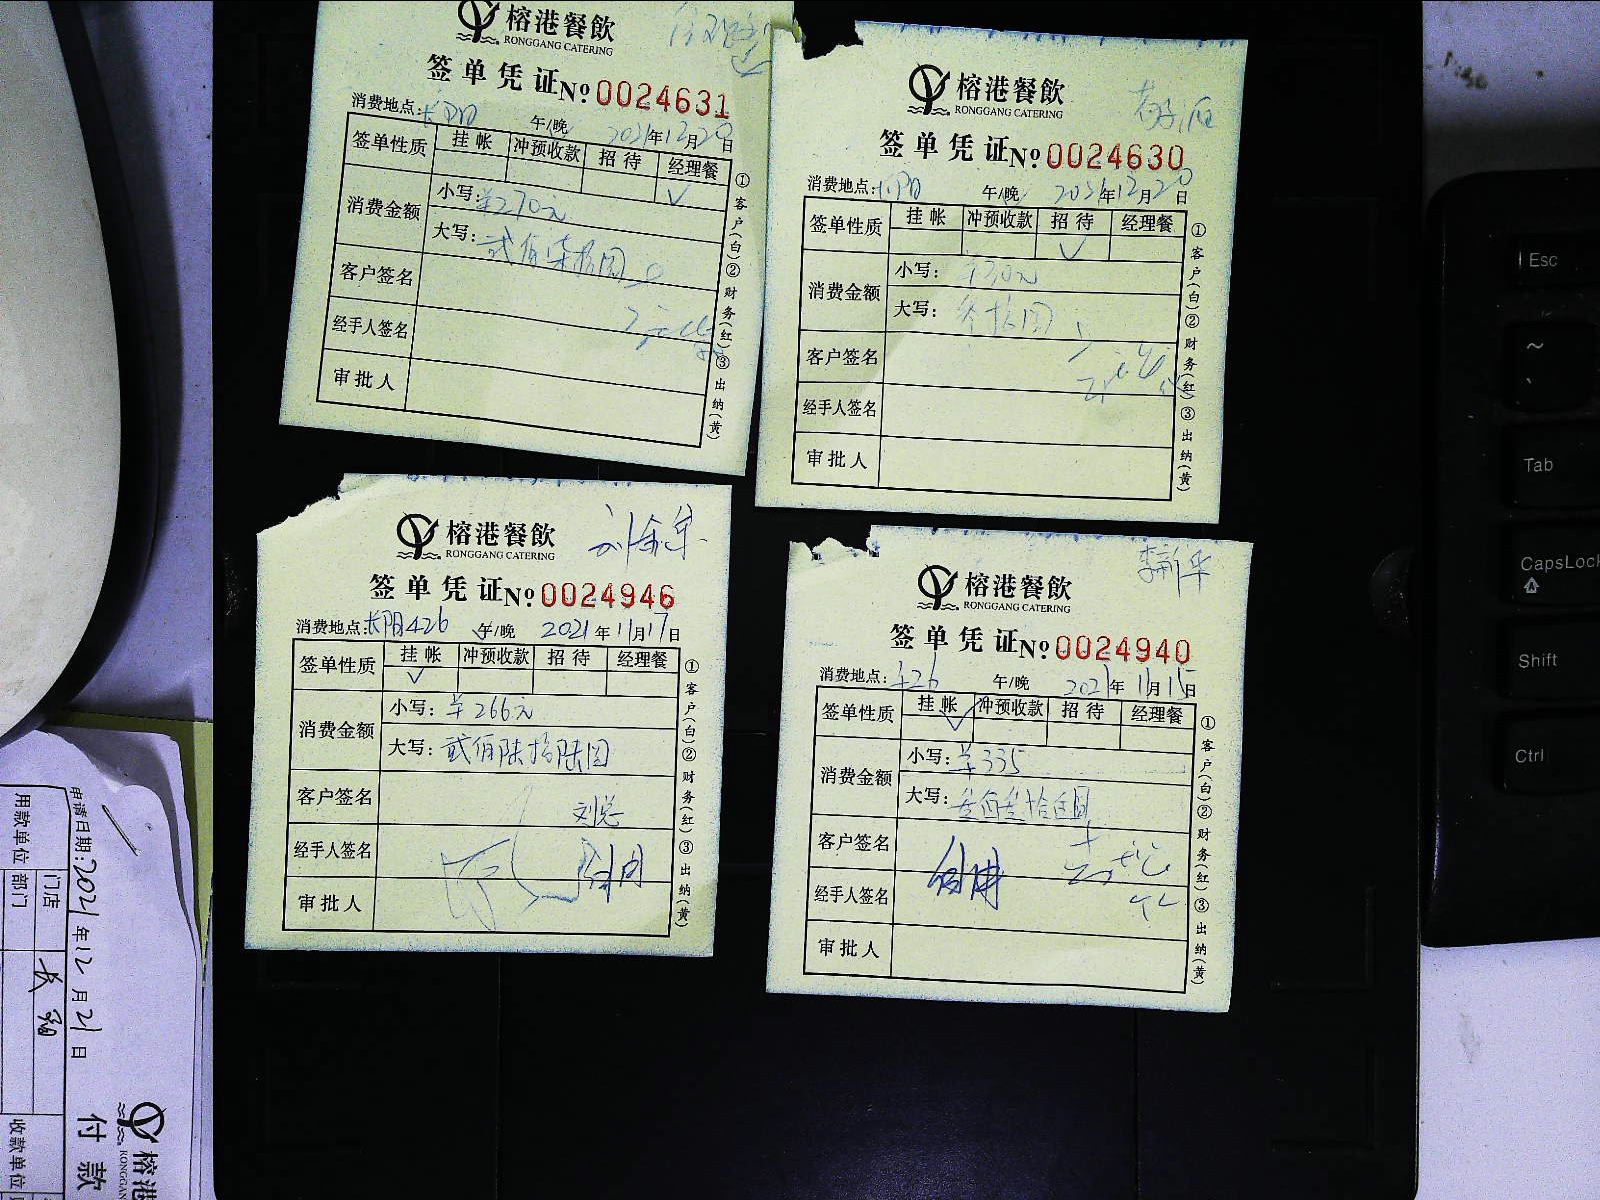 榕港餐飲
RONGGANG CATERING
签单凭证 No 0024631
消费地点: 长阳 午/晚 2021年12月20日
签单性质 挂帐 冲预收款 招待 经理餐
✓
消费金额 小写: ¥270元
大写: 贰佰柒拾圆
客户签名
经手人签名
审批人
①客户(白)②财务(红)③出纳(黄)
榕港餐飲
RONGGANG CATERING
签单凭证 No 0024630
消费地点: 长阳 午/晚 2021年12月20日
签单性质 挂帐 冲预收款 招待 经理餐
✓
消费金额 小写: ¥30元
大写: 叁拾圆
客户签名
经手人签名
审批人
①客户(白)②财务(红)③出纳(黄)
榕港餐飲
RONGGANG CATERING
签单凭证 No 0024946
消费地点: 长阳426 午/晚 2021年11月17日
签单性质 挂帐 冲预收款 招待 经理餐
✓
消费金额 小写: ¥266元
大写: 贰佰陆拾陆圆
客户签名 刘总
经手人签名
审批人
①客户(白)②财务(红)③出纳(黄)
李新华
榕港餐飲
RONGGANG CATERING
签单凭证 No 0024940
消费地点: 426 午/晚 2021年11月15日
签单性质 挂帐 冲预收款 招待 经理餐
✓
消费金额 小写: ¥335
大写:
客户签名
经手人签名
审批人
①客户(白)②财务(红)③出纳(黄)
榕港
RONGGAN
付款
申请日期: 2021年12月21日
用款单位 门店 长阳
部门
收款单位
Esc
~
`
Tab
CapsLock
Shift
Ctrl